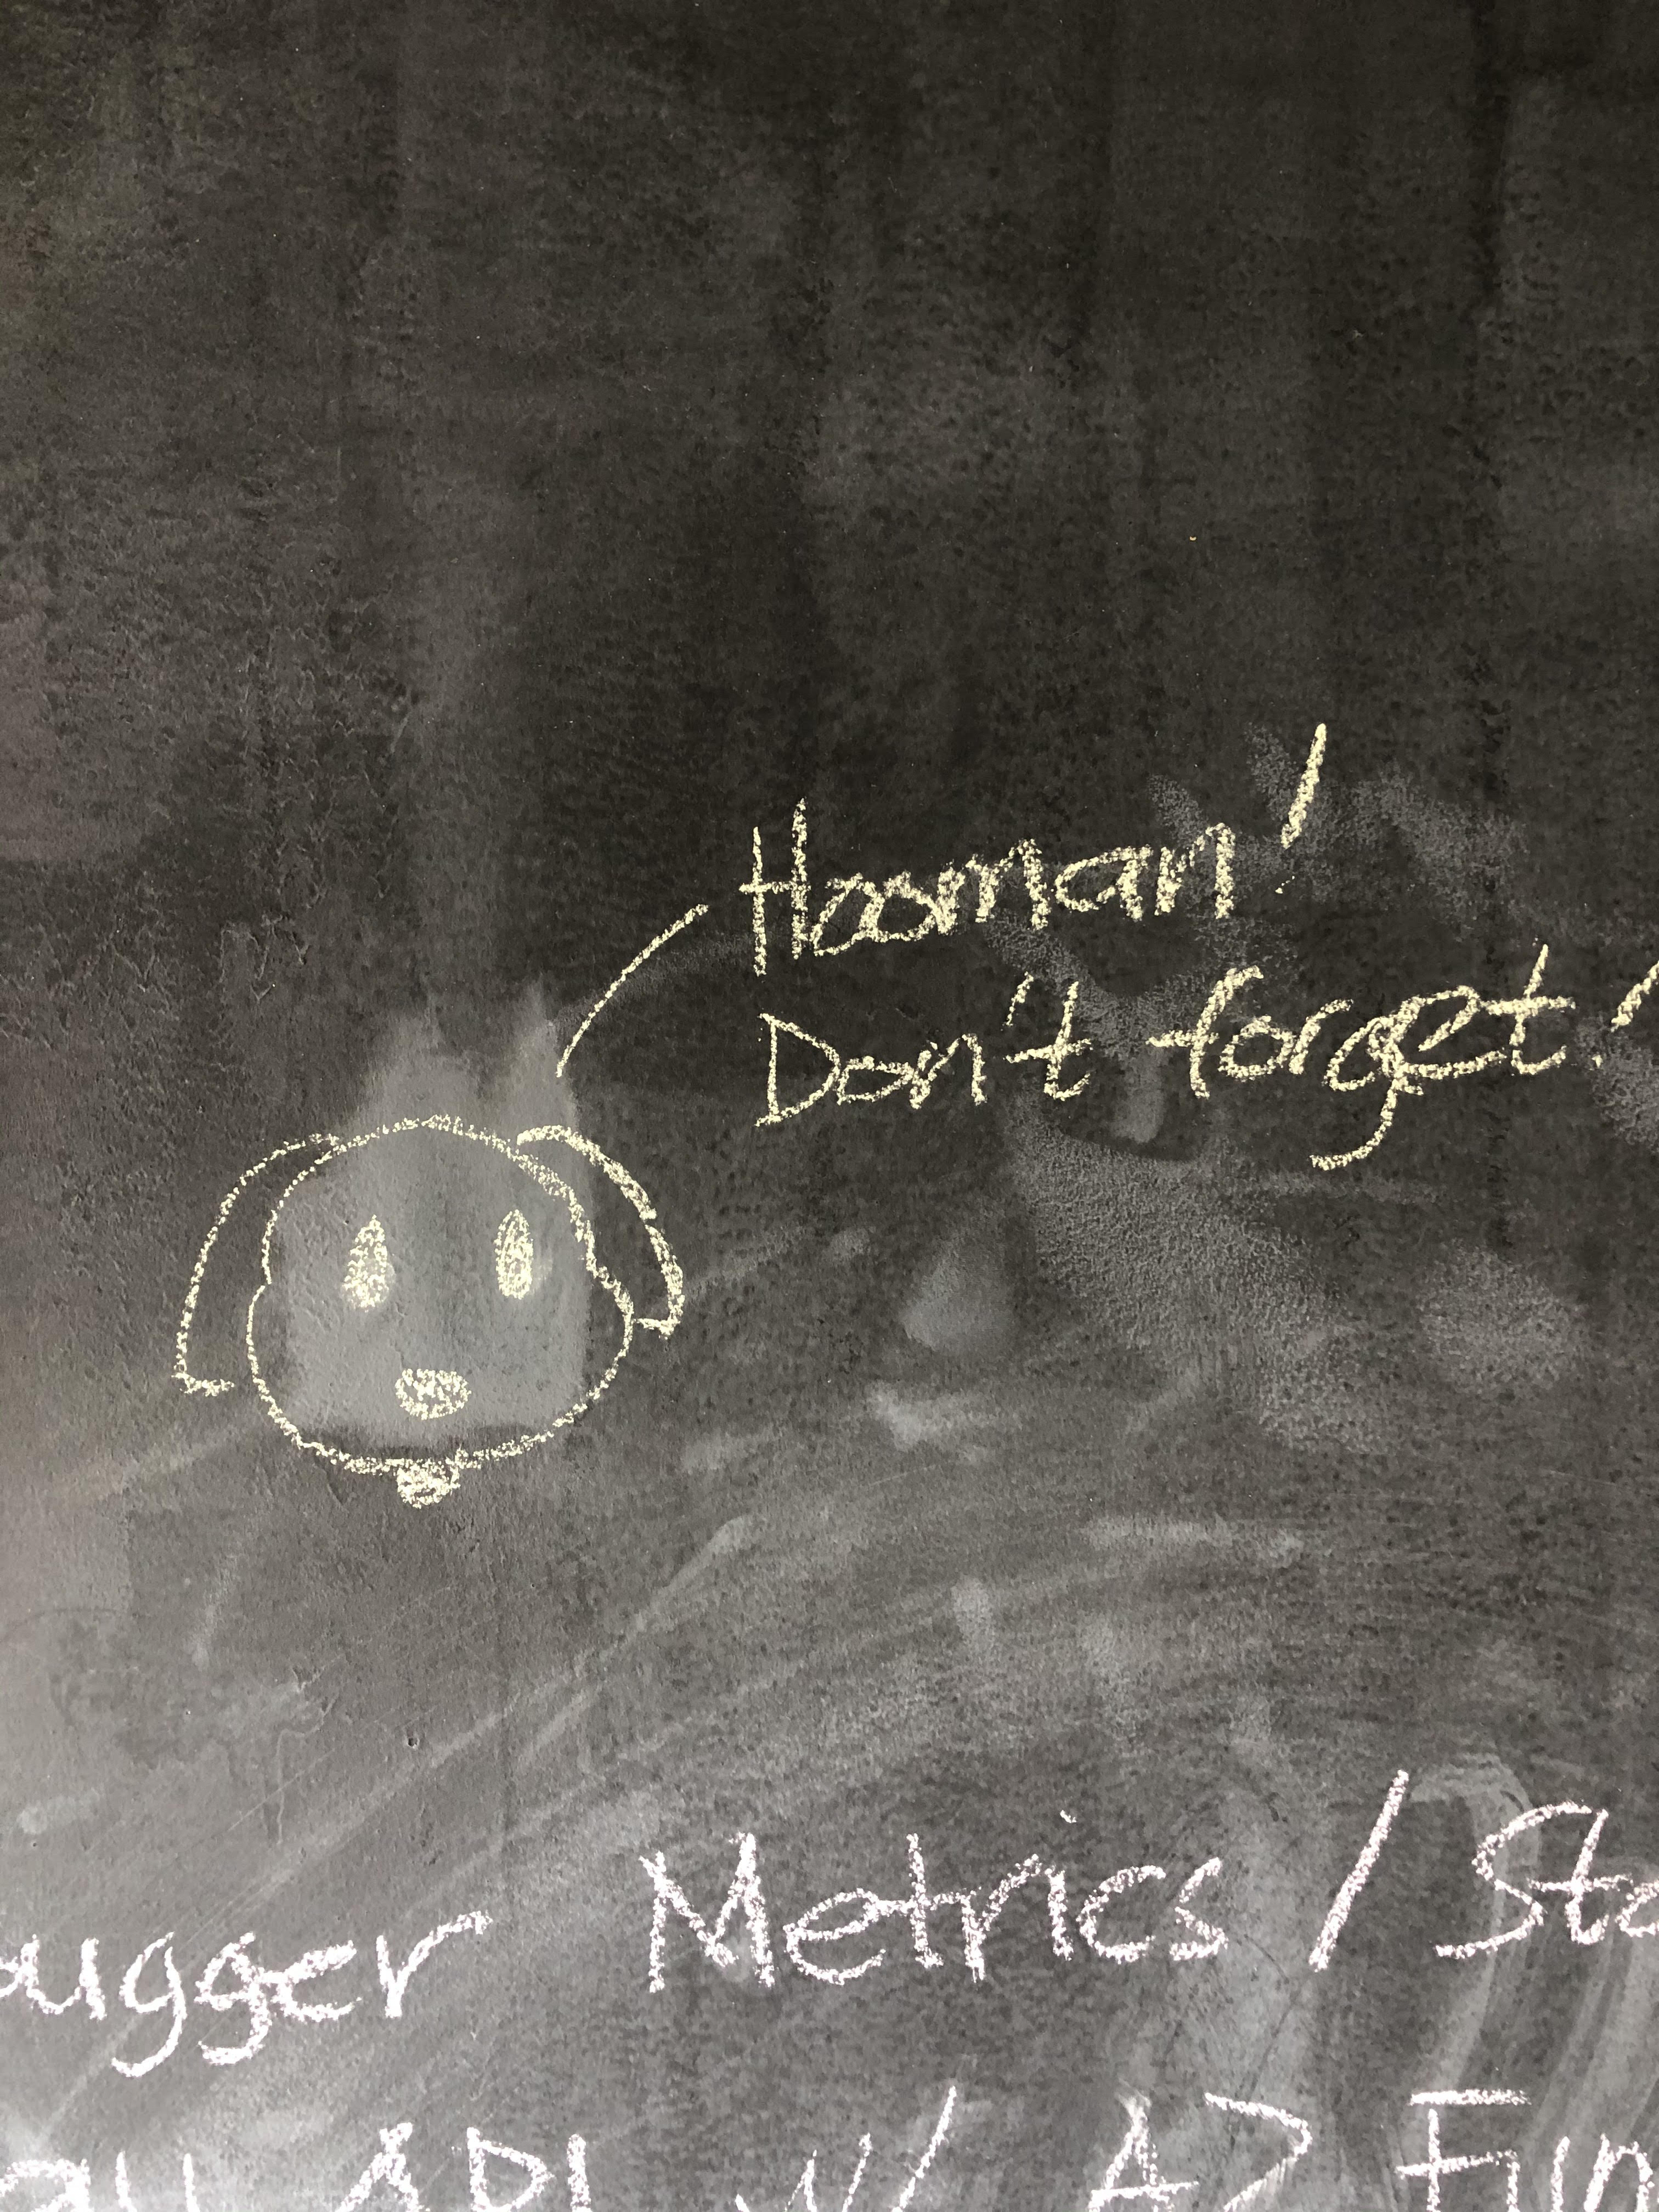 Hooman!
Don't forget!
ugger Metrics / Sta
API w/ AZ Fun